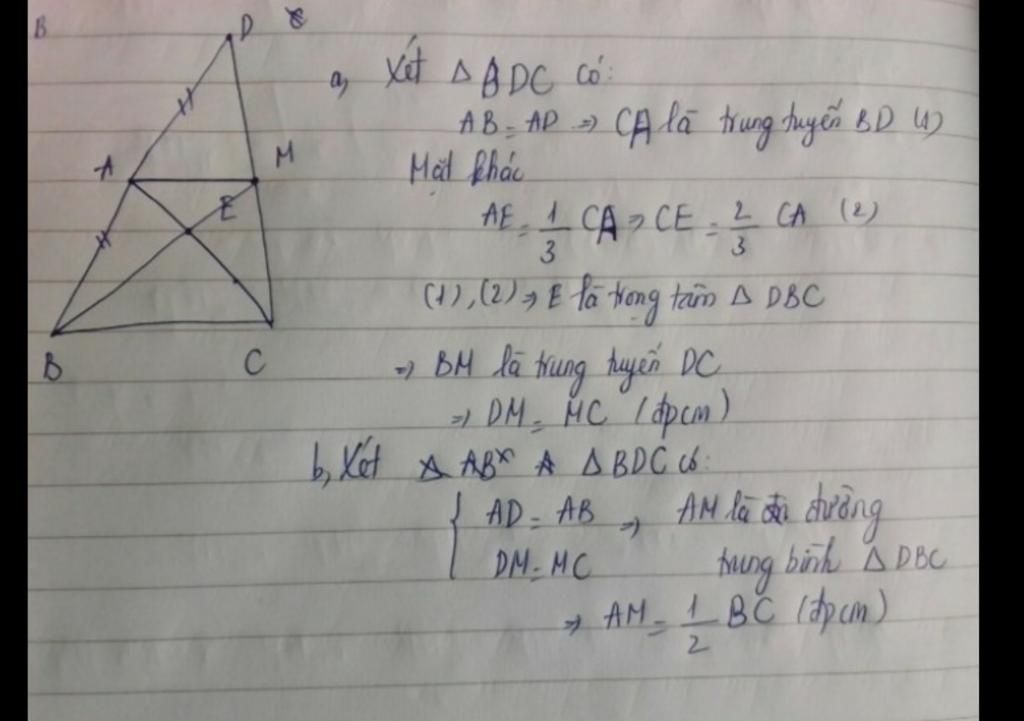 B
D
A
M
E
B
C
a, Xét Δ BDC có:
AB = AD => CA là trung tuyến BD (1)
Mặt khác
AE = 1/3 CA => CE = 2/3 CA (2)
(1), (2) => E là trọng tâm Δ DBC
=> BM là trung tuyến DC
=> DM = MC (đpcm)
b, Xét Δ BDC có:
AD = AB => AM là đường
DM = MC trung bình Δ DBC
=> AM = 1/2 BC (đpcm)